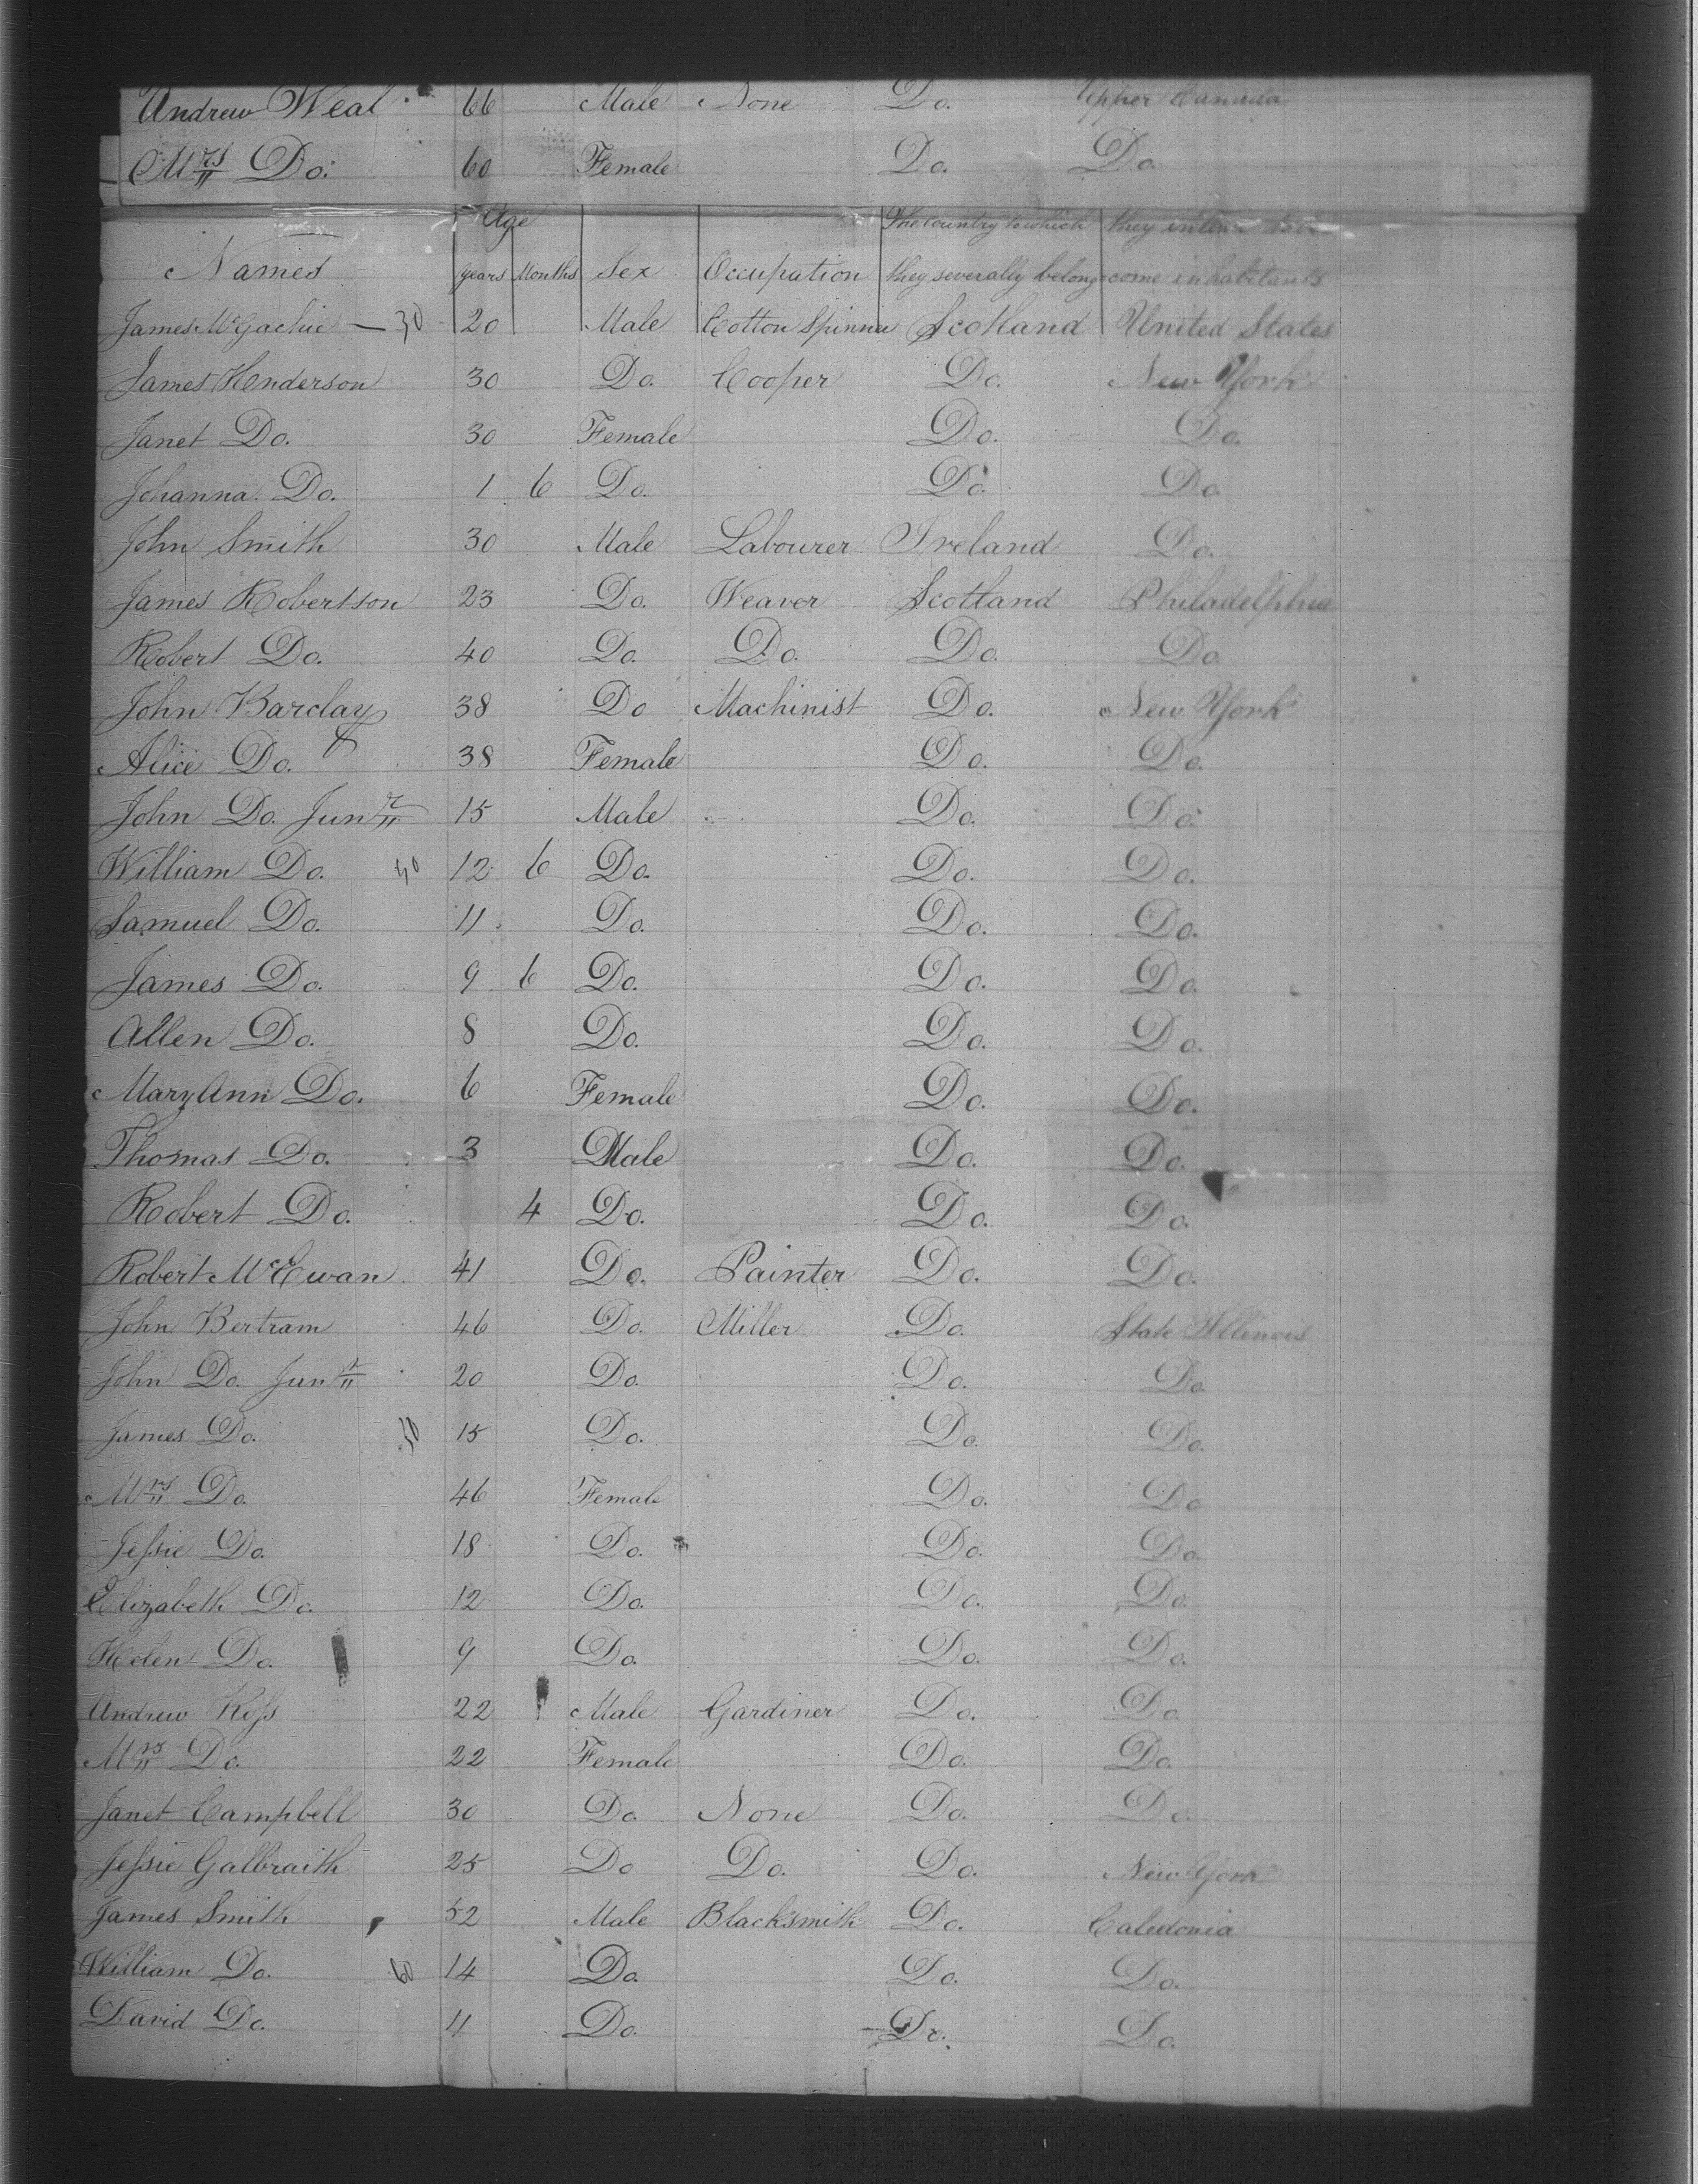 Andrew Weal 66 Male None Do. Upper Canada
Mrs Do. 60 Female Do. Do
Age The country to which they intend
Names years Months Sex Occupation they severally belong come inhabitants
James McGachie — 30 20 Male Cotton Spinner Scotland United States
James Henderson 30 Do. Cooper Do. New York
Janet Do. 30 Female Do. Do.
Johanna Do. 1 6 Do. Do. Do.
John Smith 30 Male Labourer Ireland Do.
James Robertson 23 Do. Weaver Scotland Philadelphia
Robert Do. 40 Do. Do. Do. Do.
John Barclay 38 Do Machinist Do. New York
Alice Do. 38 Female Do. Do.
John Do. Junr 15 Male Do. Do.
William Do. 40 12 6 Do. Do. Do.
Samuel Do. 11 Do. Do. Do.
James Do. 9 6 Do. Do. Do.
Allen Do. 8 Do. Do. Do.
Mary Ann Do. 6 Female Do. Do.
Thomas Do. 3 Male Do. Do.
Robert Do. 4 Do. Do. Do.
Robert McEwan 41 Do. Painter Do. Do.
John Bertram 46 Do. Miller Do. State Illinois
John Do. Junr 20 Do. Do. Do.
James Do. 50 15 Do. Do. Do.
Mrs Do. 46 Female Do. Do
Jessie Do. 18 Do. Do. Do.
Elizabeth Do. 12 Do. Do. Do.
Helen Do. 9 Do. Do. Do.
Andrew Ross 22 Male Gardiner Do. Do.
Mrs Do. 22 Female Do. Do.
Janet Campbell 30 Do. None Do. Do.
Jessie Galbraith 25 Do Do. Do. New York
James Smith 52 Male Blacksmith Do. Caledonia
William Do. 60 14 Do. Do. Do.
David Do. 11 Do. Do. Do.